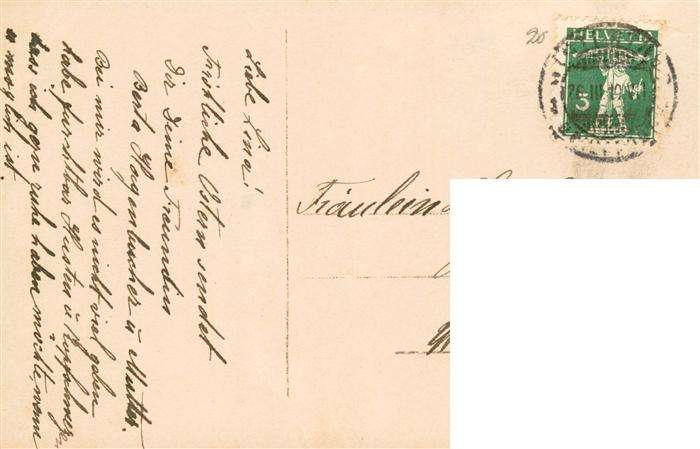 Liebe Lina!
Fröhliche Ostern sendet
Dir Deine Freundin
Berta Hagenbucher u Mutter.
Bei mir wird es nicht viel geben
habe furchtbar Husten u Kopfweh
dass ich gern ruhe haben möchte, wenn
es möglich ist.
20
HELVETI
5
26. III
Fräulein